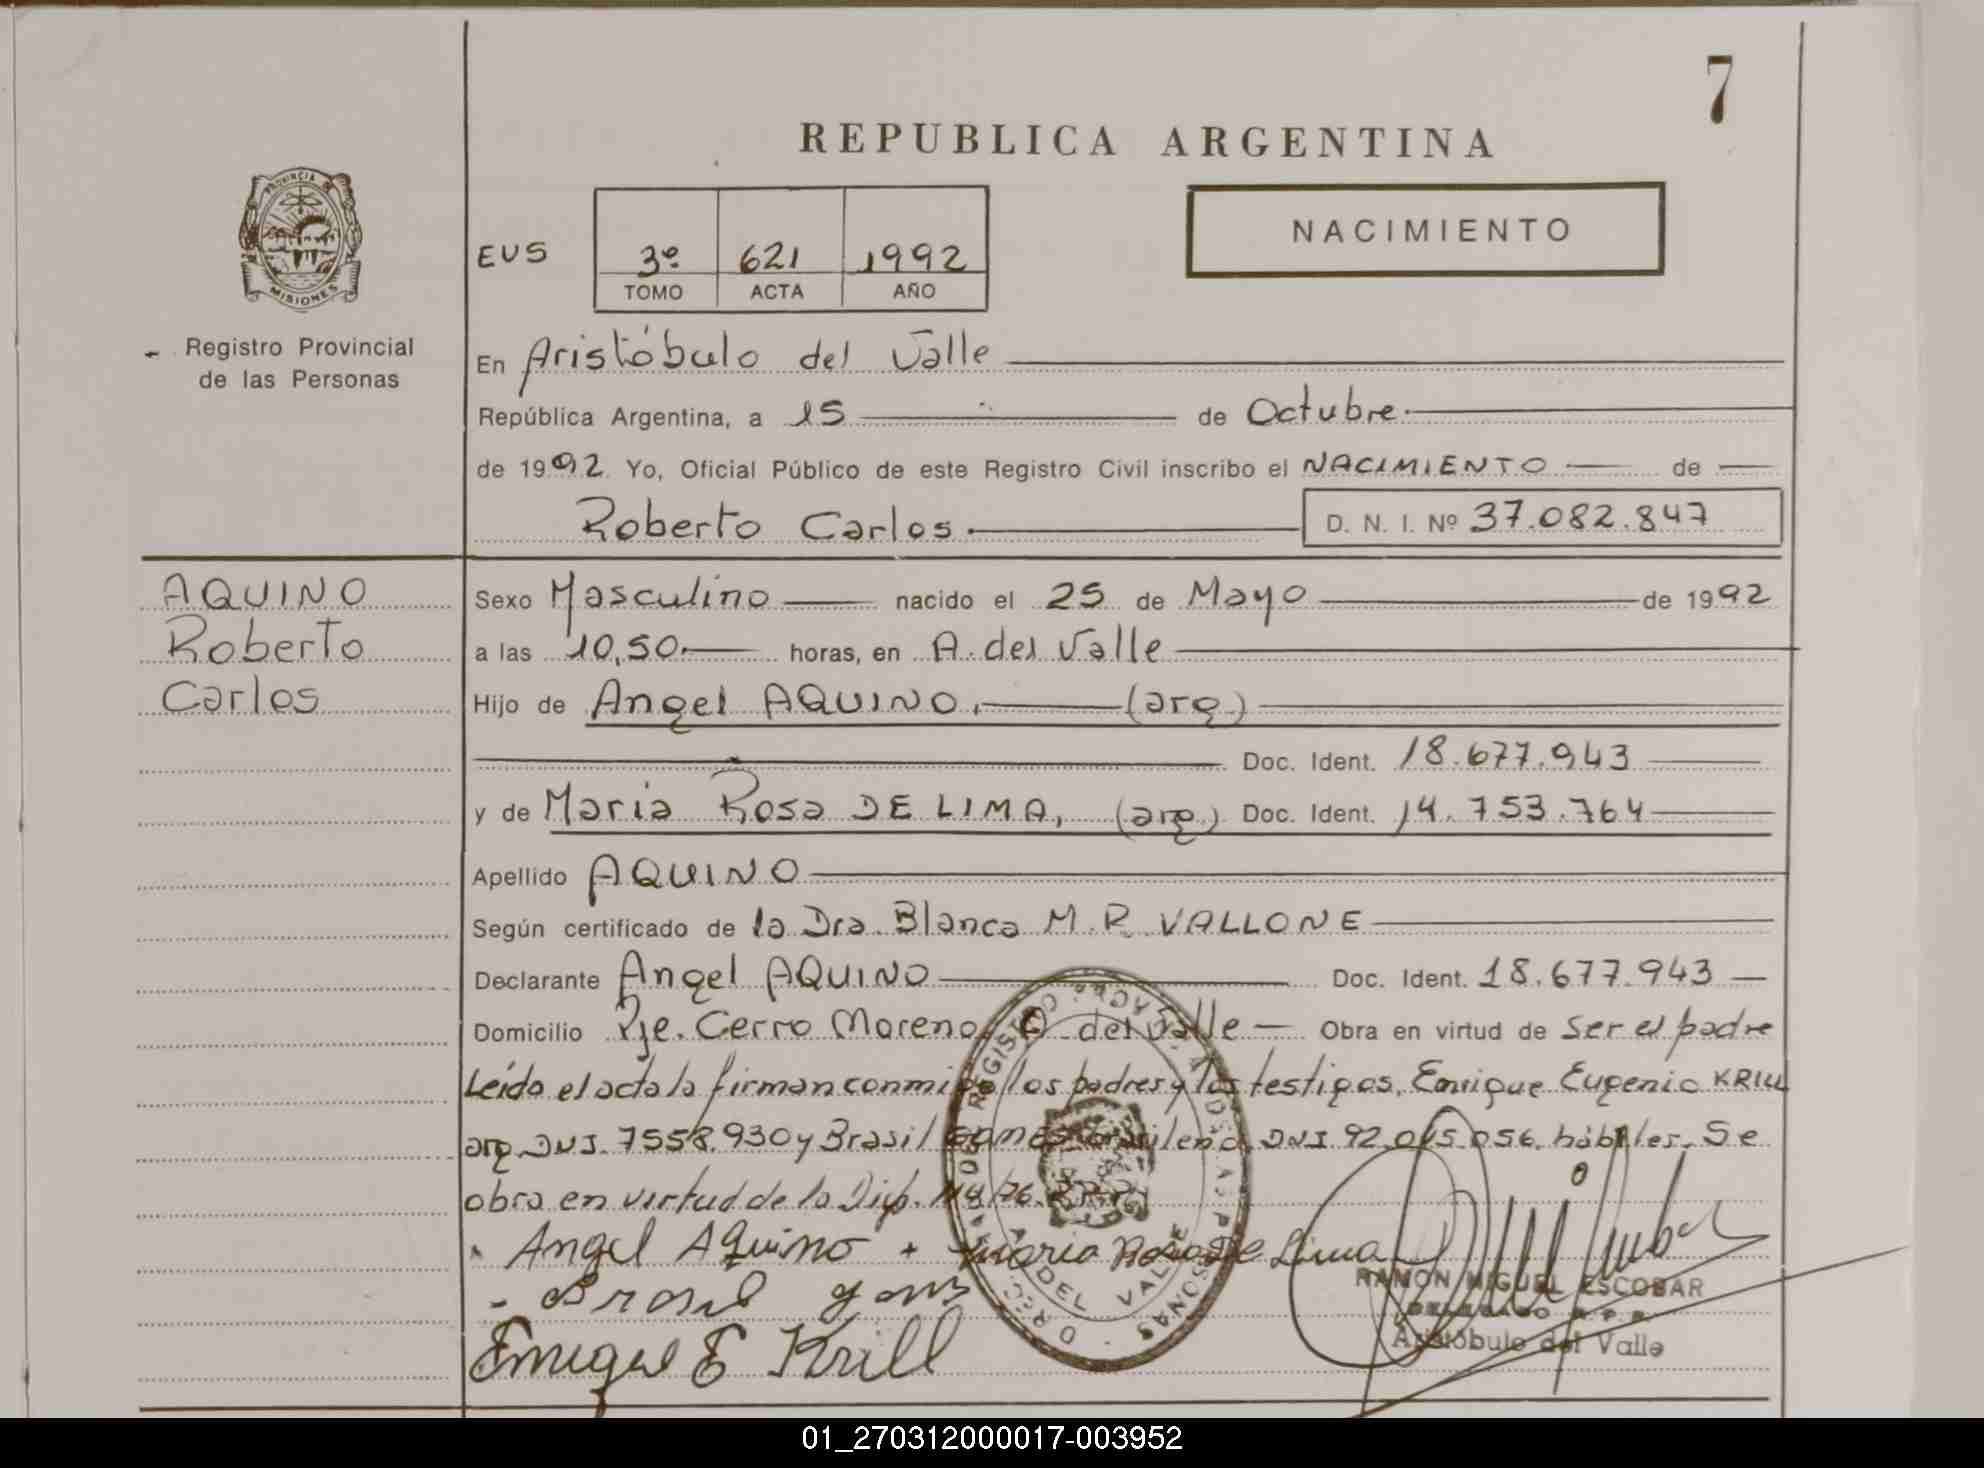 7
REPUBLICA ARGENTINA
PROVINCIA DE
MISIONES
Registro Provincial
de las Personas
EUS
3º 621 1992
TOMO ACTA AÑO
NACIMIENTO
En Aristóbulo del Valle
República Argentina, a 15 de Octubre.
de 1992 Yo, Oficial Público de este Registro Civil inscribo el NACIMIENTO de
Roberto Carlos.
D. N. I. Nº 37.082.847
AQUINO
Roberto
Carlos
Sexo Masculino nacido el 25 de Mayo de 1992
a las 10,50. horas, en A. del Valle
Hijo de Angel AQUINO, (arg)
Doc. Ident. 18.677.943
y de Maria Rosa DE LIMA, (arg) Doc. Ident. 14.753.764
Apellido AQUINO
Según certificado de la Dra. Blanca M. R. VALLONE
Declarante Angel AQUINO Doc. Ident. 18.677.943
Domicilio Pje. Cerro Moreno, A. del Valle Obra en virtud de ser el padre
Leído el acta la firman conmigo los padres y los testigos, Enrique Eugenio KRILL
arg. DNI. 7558.930 y Brasil brasileno DNI 92.065.056. hábiles. Se
obra en virtud de la Disp. 118/76.
Angel Aquino + Maria Rosa De Lima
Brasil
E Krill
RAMON MIGUEL ESCOBAR
DELEGADO R.P.P.
Aristóbulo del Valle
01_270312000017-003952